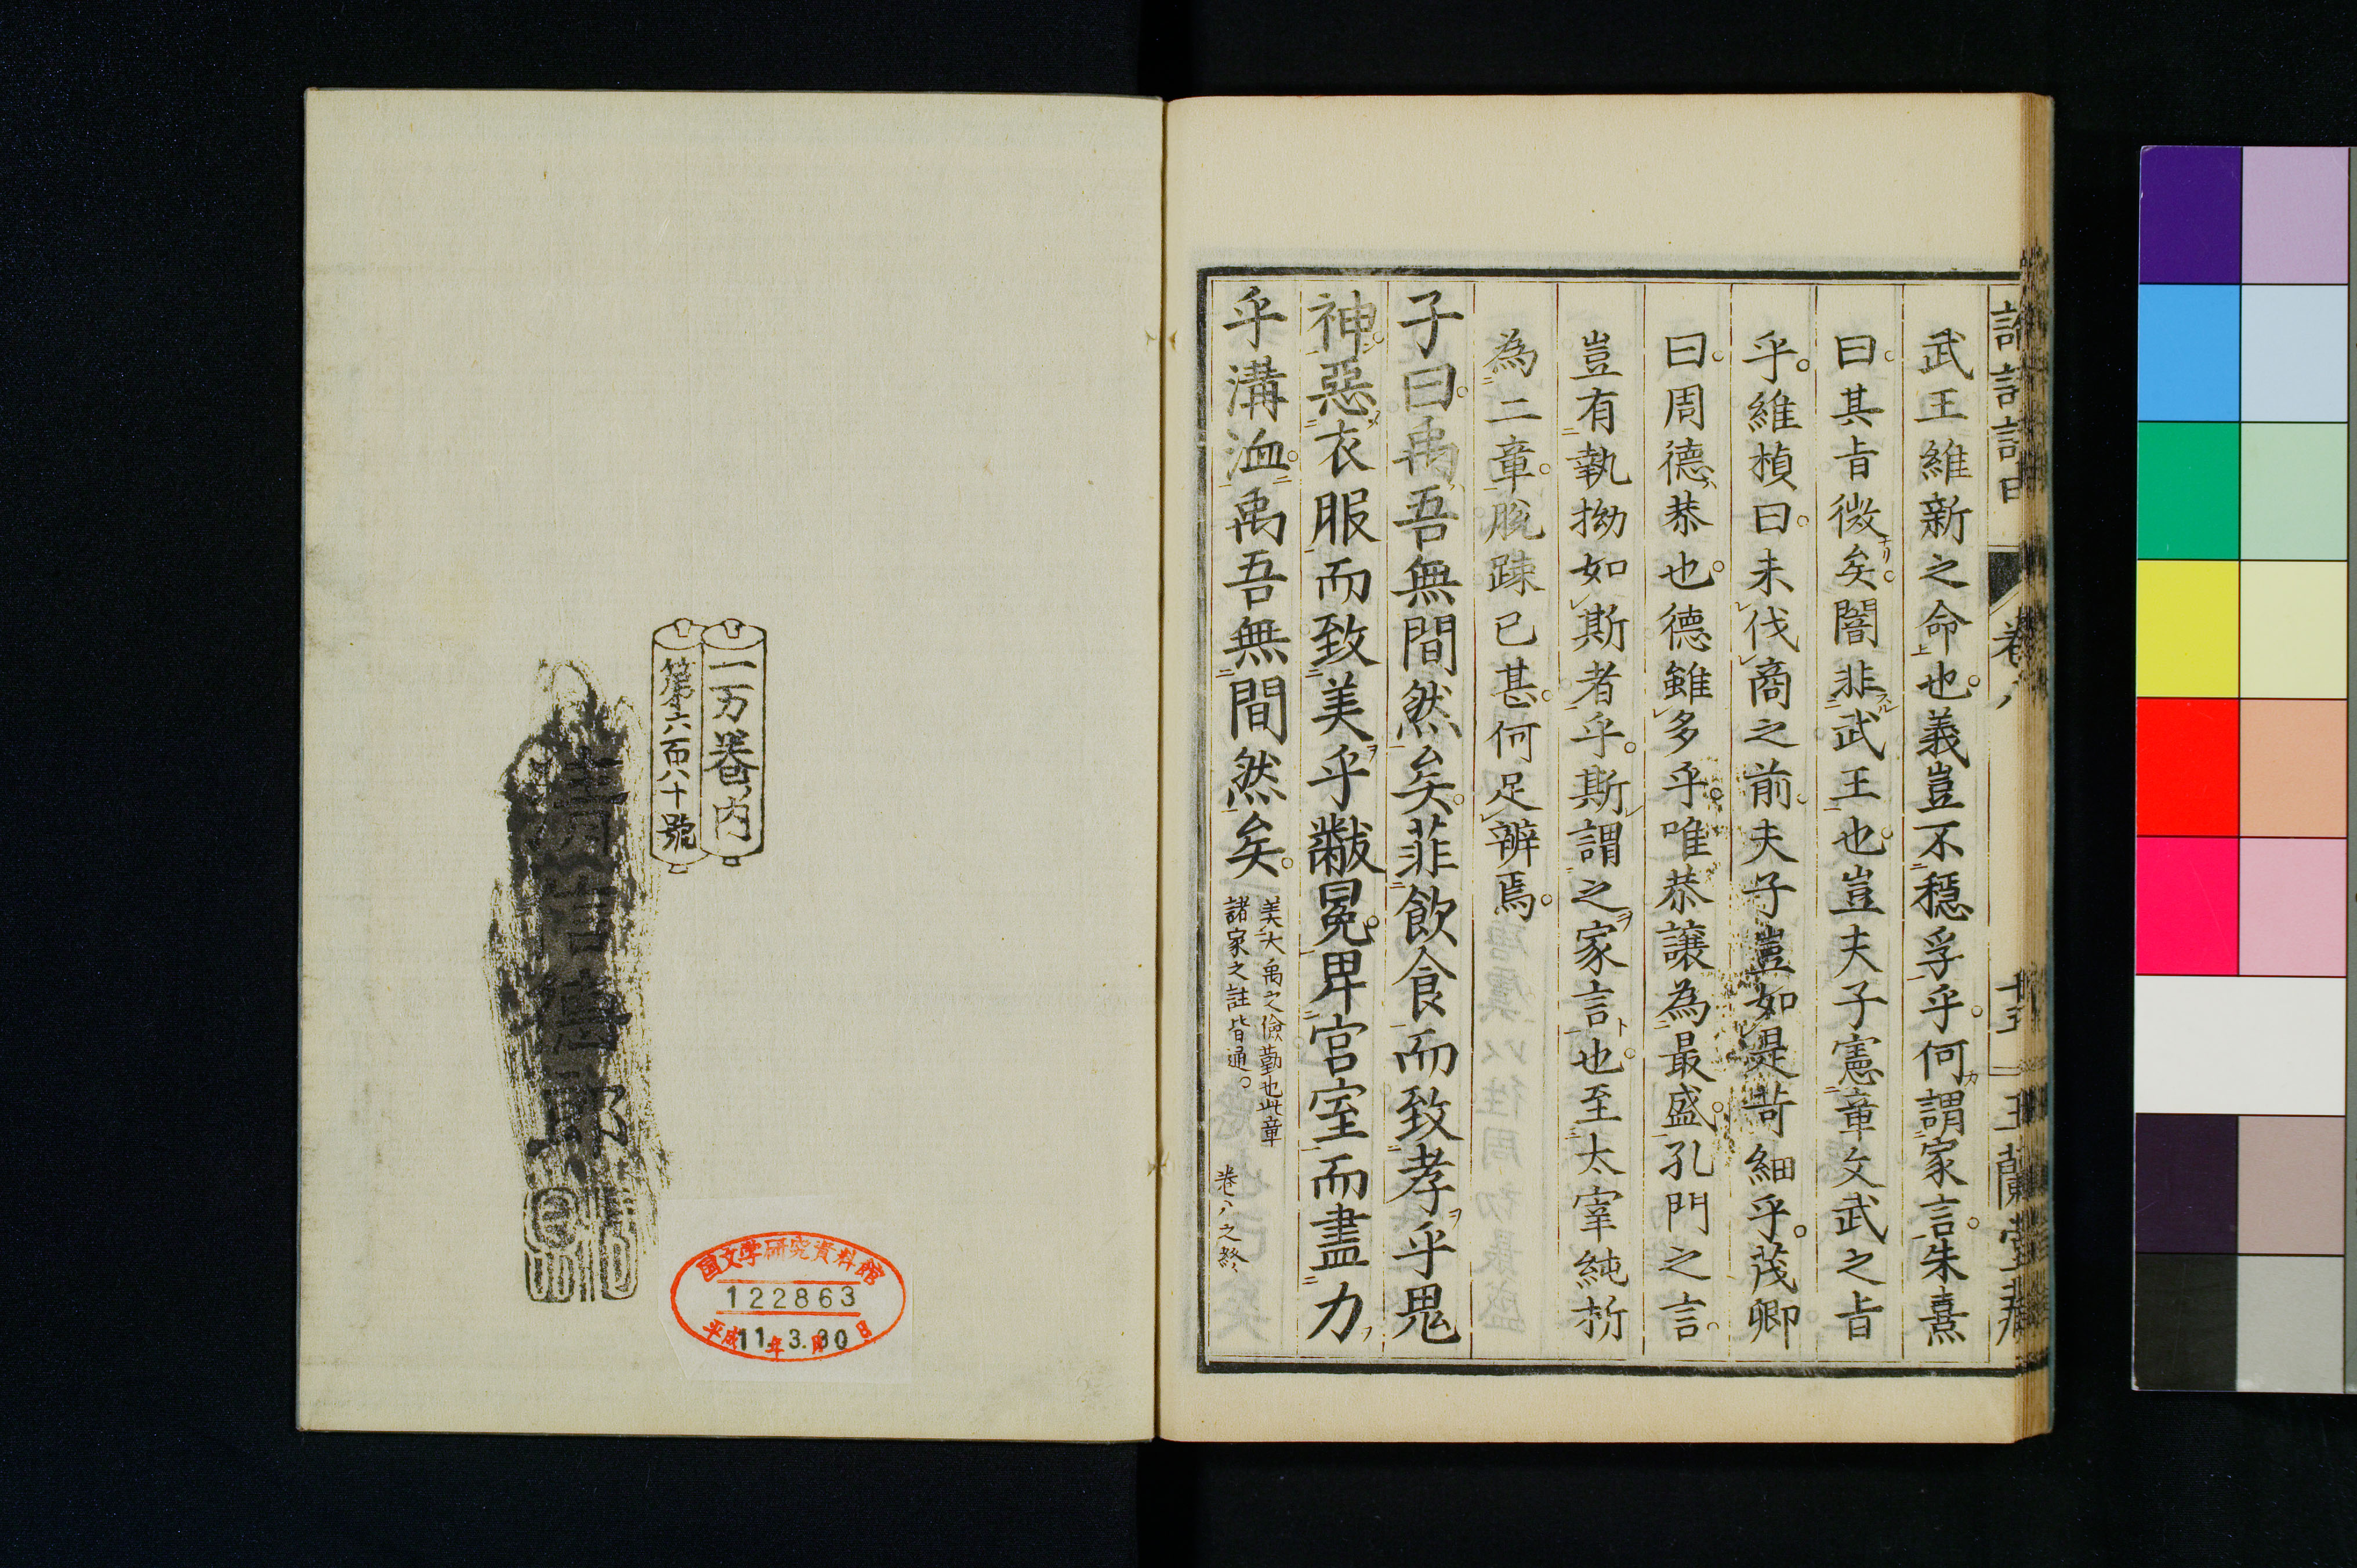 武王維新之命也義豈不穩孚乎何謂家言朱熹
曰其旨微矣闇非武王也豈夫子憲章文武之旨
乎維楨曰未伐商之前夫子豈如是苛細乎茂卿
曰周德恭也德雖多乎唯恭讓為最盛孔門之言
豈有執拗如斯者乎斯謂之家言也至太宰純折
為二章脫疎已甚何足辨焉
子曰禹吾無間然矣菲飲食而致孝乎鬼
神惡衣服而致美乎黻冕卑宮室而盡力
乎溝洫禹吾無間然矣
美大禹之儉勤也此章
諸家之註皆通
卷八之終
卷八
十五
玉蘭堂藏
一万巻内
第六百八十號
国文学研究資料館
122863
平成11年3月30日